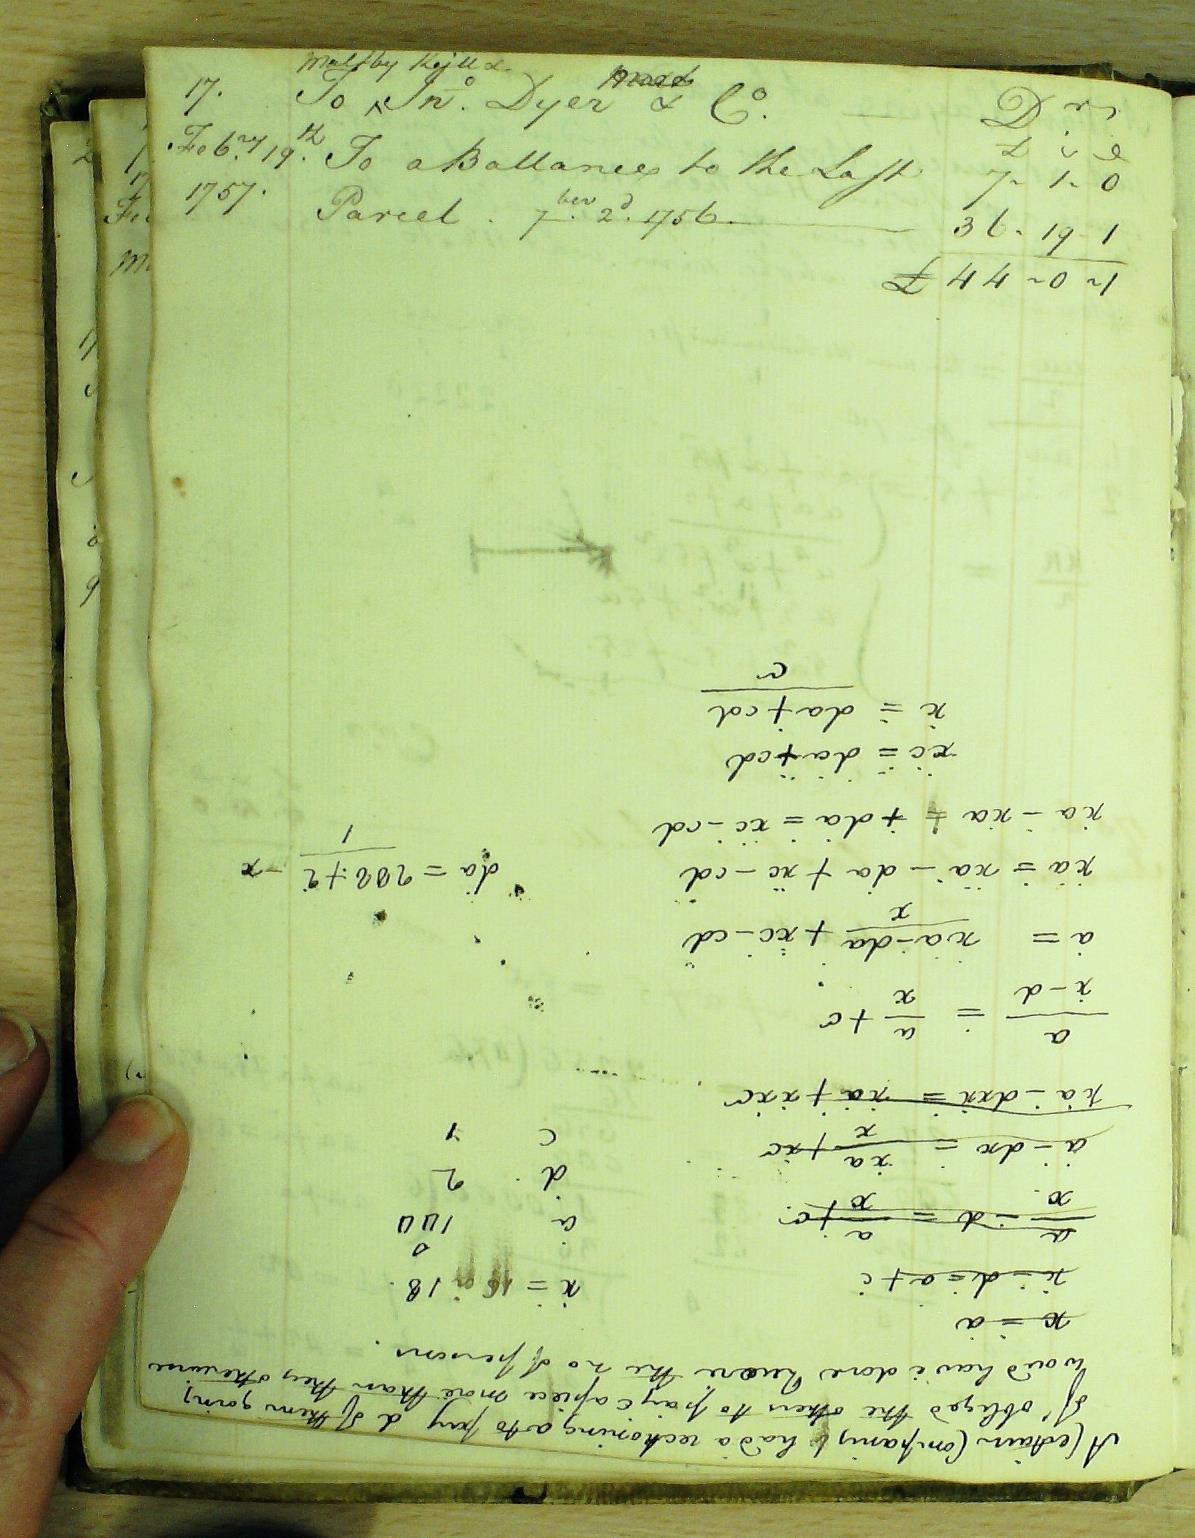 17. To ^ Maltby Kyll & Jnº. Dyer & Cº. Dr
£ s d
Feb.ry 19th. To a Ballances to the Last 7 - 1 - 0
1757. Parcel . 7ber. 2d. 1756. 36 - 19 - 1
£ 44 - 0 - 1
A Certain Company had a reckoning a to pay d of them going
off obliged the others to pay c apiece more than they otherwise
would have done Quere the no of persons.
x = a
x - d = a + c
a/x - d = a/x + c
a - dx = xa/x + xc
xa - dxx = xa + xxc
a/(x - d) = a/x + c
a = (xa - da)/x + xc - cd
xa = xa - da + xc - cd
xa - xa + da = xc - cd
xc = da + cd
x = (da + cd)/c
x = 16 18.
a 144
d. 2
c 1
da = 288 + 2/1 - x